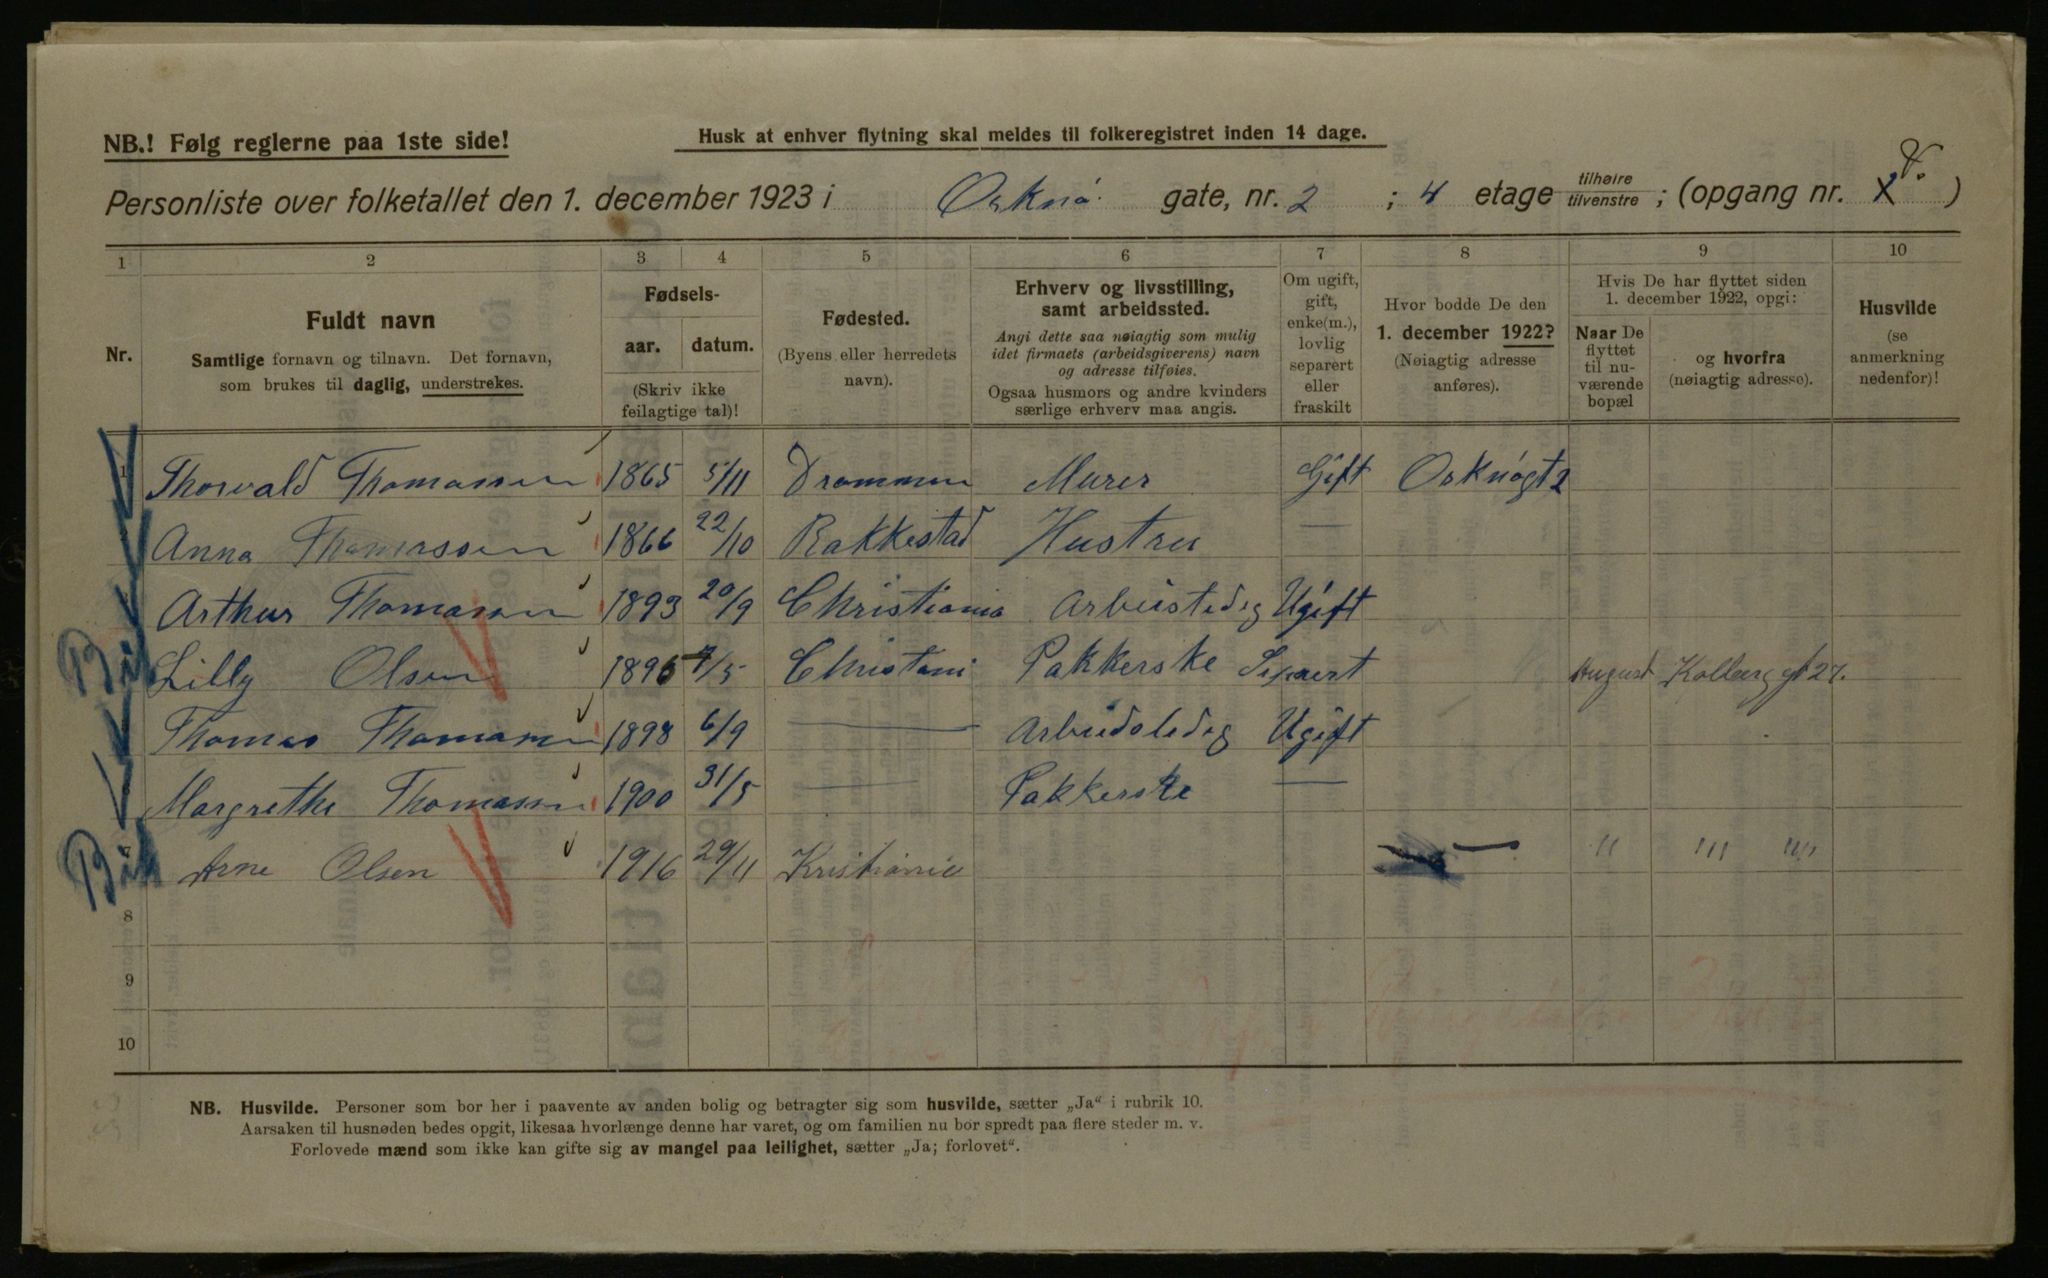 NB.! Følg reglerne paa 1ste side!
Husk at enhver flytning skal meldes til folkeregistret inden 14 dage.
Personliste over folketallet den 1. december 1923 i Orknø gate, nr. 2 ; 4 etage tilhøire tilvenstre ; (opgang nr. V. )
1 2 3 4 5 6 7 8 9 10
Nr.
Fuldt navn
Samtlige fornavn og tilnavn. Det fornavn,
som brukes til daglig, understrekes.
Fødsels-
aar. datum.
(Skriv ikke
feilagtige tal)!
Fødested.
(Byens eller herredets
navn).
Erhverv og livsstilling,
samt arbeidssted.
Angi dette saa nøiagtig som mulig
idet firmaets (arbeidsgiverens) navn
og adresse tilføies.
Ogsaa husmors og andre kvinders
særlige erhverv maa angis.
Om ugift,
gift,
enke(m.),
lovlig
separert
eller
fraskilt
Hvor bodde De den
1. december 1922?
(Nøiagtig adresse
anføres).
Hvis De har flyttet siden
1. december 1922, opgi:
Naar De
flyttet
til nu-
værende
bopæl
og hvorfra
(nøiagtig adresse).
Husvilde
(se
anmerkning
nedenfor)!
1 Thorvald Thomassen 1865 5/11 Drammen Murer Gift Orknøgt 2
Anna Thomassen 1866 22/10 Rakkestad Hustru —
Arthur Thomassen 1893 20/9 Christiania Arbeisledig Ugift
Lilly Olsen 1896 7/5 Christani Pakkerske Sepaert August Kolberggt 27.
Thomas Thomassen 1898 6/9 — Arbeidsledig Ugift
Margrethe Thomassen 1900 31/5 — Pakkerske —
7 Arne Olsen 1916 29/11 Kristiania — " " "
8
9
10
NB. Husvilde. Personer som bor her i paavente av anden bolig og betragter sig som husvilde, sætter „Ja“ i rubrik 10.
Aarsaken til husnøden bedes opgit, likesaa hvorlænge denne har varet, og om familien nu bor spredt paa flere steder m. v.
Forlovede mænd som ikke kan gifte sig av mangel paa leilighet, sætter „Ja; forlovet“.